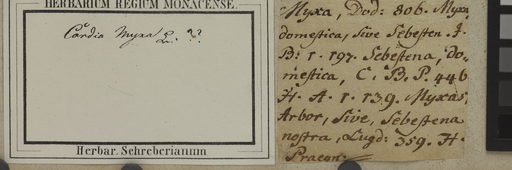 HERBARIUM REGIUM MONACENSE.
Cordia Myxa L. ??
Herbar. Schreberianum
Myxa, Dod: 806. Myxa
domestica, sive Sebesten. J.
B: 1. 197. Sebestena, do-
mestica, C. B. P. 446
H. A. 1. 139. Myxas,
Arbor, Sive, Sebestena
nostra, Lugd: 359. H.
Praecon: